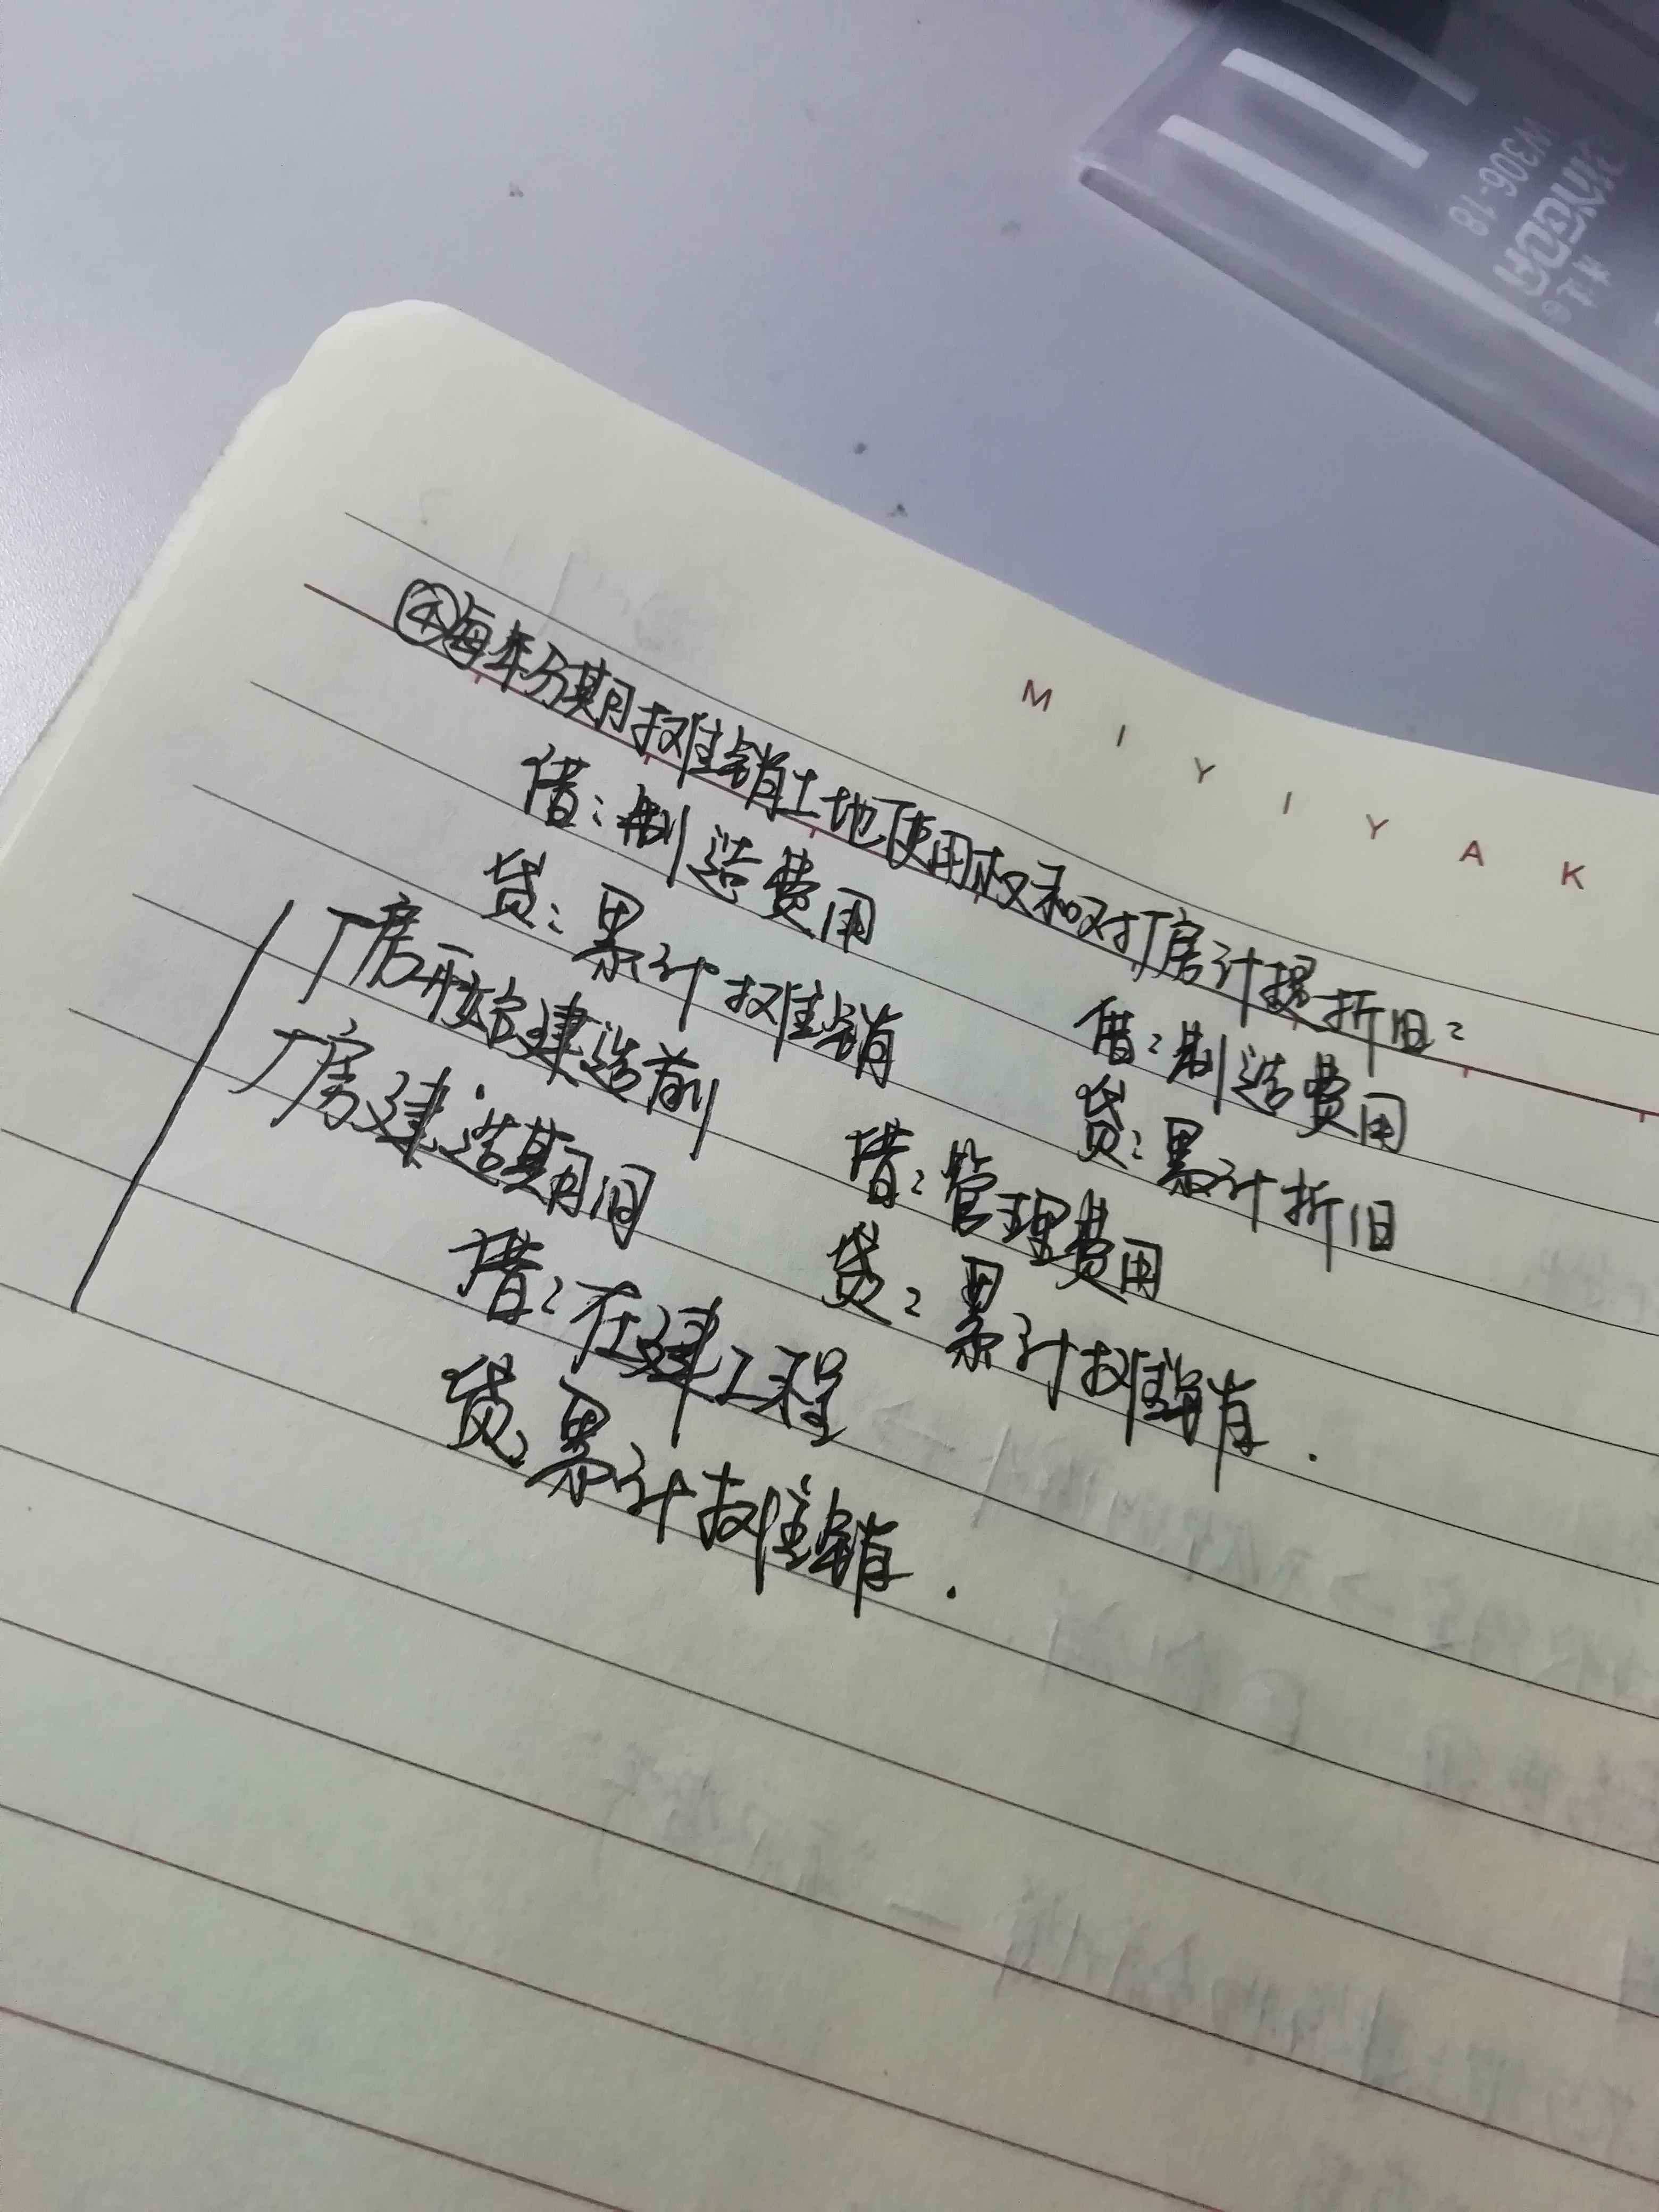 W306-18
M I Y I Y A K
④每年分期摊销土地使用权和对厂房计提折旧：
借：制造费用
贷：累计摊销
借：制造费用
贷：累计折旧
厂房开始建造前
借：管理费用
贷：累计摊销.
厂房建造期间
借：在建工程
贷：累计摊销.